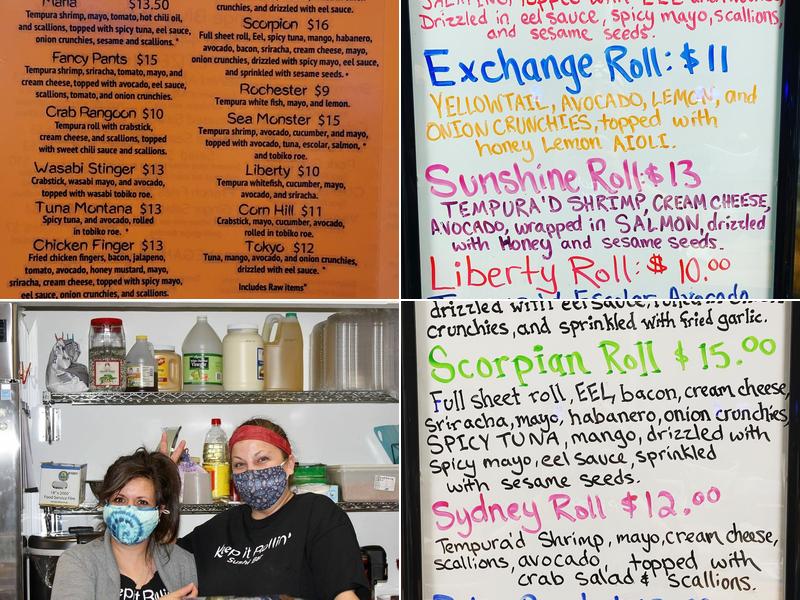 Mafia $13.50
Tempura shrimp, mayo, tomato, hot chili oil,
and scallions, topped with spicy tuna, eel sauce,
onion crunchies, sesame and scallions. *
Fancy Pants $15
Tempura shrimp, sriracha, tomato, mayo, and
cream cheese, topped with avocado, eel sauce,
scallions, tomato, and onion crunchies.
Crab Rangoon $10
Tempura roll with crabstick,
cream cheese, and scallions, topped
with sweet chili sauce and scallions.
Wasabi Stinger $13
Crabstick, wasabi mayo, and avocado,
topped with wasabi tobiko roe.
Tuna Montana $13
Spicy tuna, and avocado, rolled
in tobiko roe. *
Chicken Finger $13
Fried chicken fingers, bacon, jalapeno,
tomato, avocado, honey mustard, mayo,
sriracha, cream cheese, topped with spicy mayo,
eel sauce, onion crunchies, and scallions.
crunchies, and drizzled with eel sauce.
Scorpion $16
Full sheet roll, Eel, spicy tuna, mango, habanero,
avocado, bacon, sriracha, cream cheese, mayo,
onion crunchies, drizzled with spicy mayo, eel sauce,
and sprinkled with sesame seeds. *
Rochester $9
Tempura white fish, mayo, and lemon.
Sea Monster $15
Tempura shrimp, avocado, cucumber, and mayo,
topped with avocado, tuna, escolar, salmon, *
and tobiko roe.
Liberty $10
Tempura whitefish, cucumber, mayo,
avocado, and sriracha.
Corn Hill $11
Crabstick, mayo, cucumber, avocado,
rolled in tobiko roe.
Tokyo $12
Tuna, mango, avocado, and onion crunchies,
drizzled with eel sauce. *
Includes Raw items*
JALAPEÑO, topped with EEL and
Drizzled in, eel sauce, spicy mayo, scallions,
and sesame seeds.
Exchange Roll: $11
YELLOWTAIL, AVOCADO, LEMON, and
ONION CRUNCHIES, topped with
honey Lemon AIOLI.
Sunshine Roll: $13
TEMPURA'D SHRIMP, CREAM CHEESE,
AVOCADO, wrapped in SALMON, drizzled
with Honey and sesame seeds.
Liberty Roll: $10.00
18" x 2000'
Food Service Film
Keep it Rollin'
Sushi Bar
ep it Rolli
drizzled with eel sauce,
crunchies, and sprinkled with fried garlic.
Scorpian Roll $15.00
Full sheet roll, EEL, bacon, cream cheese,
sriracha, mayo, habanero, onion crunchies,
SPICY TUNA, mango, drizzled with
spicy mayo, eel sauce, sprinkled
with sesame seeds.
Sydney Roll $12.00
Tempura'd Shrimp, mayo, cream cheese,
scallions, avocado, topped with
crab salad & scallions.